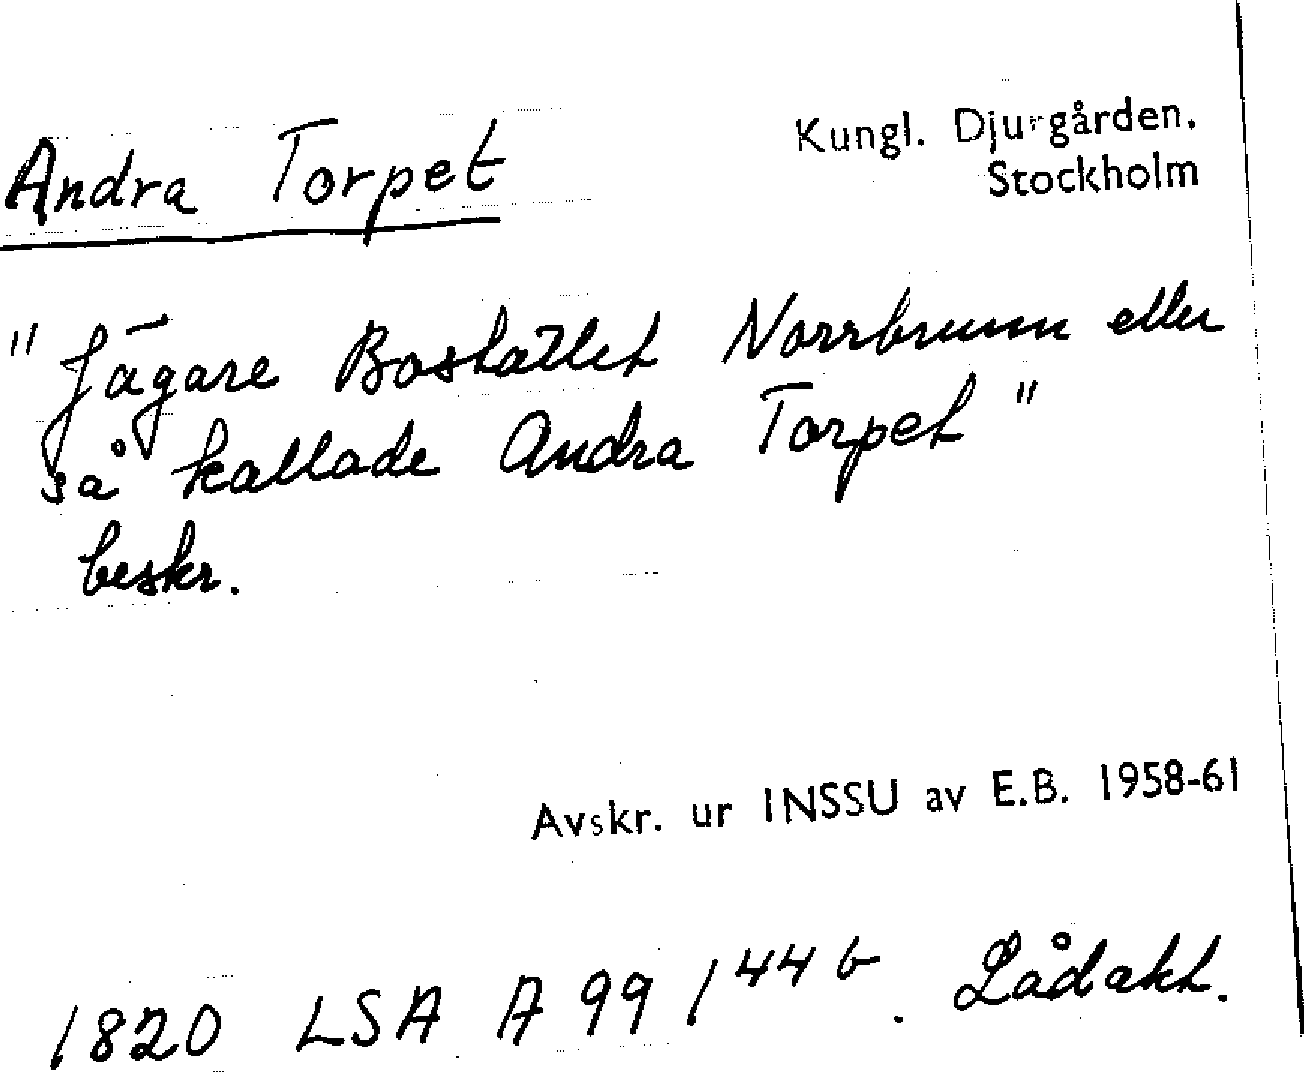 Andra Torpet
Kungl. Djurgården.
Stockholm
"Jägare Bostället Norrbrunn eller
så kallade Andra Torpet"
beskr.
Avskr. ur INSSU av E.B. 1958-61
1820 LSA A 99 / 44 b. Lådakt.